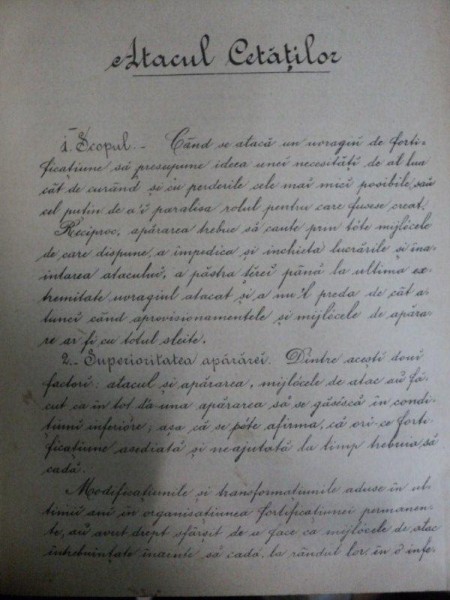 Atacul Cetăților
1. Scopul. - Când se atacă un uoragiŭ de forti-
ficațiune să presupune ideea unei necesități de al lua
cât de curând și cu perderile cele mai mici posibile saŭ
cel puțin de a'ĭ paralisa rolul pentru care fusese creat.
Reciproc, apărarea trebue să caute prin tóte mijlócele
de care dispune, a impedica și inchieta lucrările și ina-
intarea atacului, a păstra țărei până la ultima ex-
tremitate uoragiul atacat și a nu'l preda de cât a-
tunci când aprovisionamentele și mijlócele de apăra-
re ar fi cu totul sleite.
2. - Superioritatea apărărei. Dintre acești doui
factori: atacul și apărarea, mijlócele de atac aŭ fă-
cut ca in tot d'a una apărarea să se găsiscă în condi-
țiuni inferióre; așa că se póte afirma, că ori-ce forti-
ficațiune asediată și neajutată la timp trebuia să
cadă.
Modificațiunile și transformațiunile aduse in ul-
timii ani in organisațiunea fortificațiunei permanen-
te, au avut drept sfârșit de a face ca mijlócele de atac
intrebuințate inainte să cadă, la rândul lor in o infe-